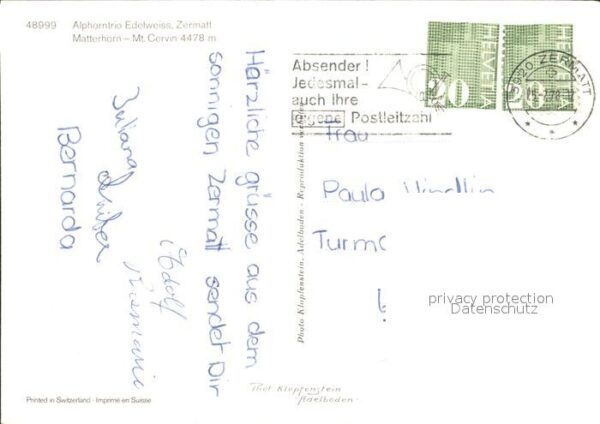 48999 Alphorntrio Edelweiss, Zermatt
Matterhorn – Mt. Cervin 4478 m
Härzliche grüsse aus dem
sonnigen Zermatt sendet Dir
Adolf
Rosmarie
Juliana
Bernarda
Printed in Switzerland · Imprimé en Suisse
Photo Klopfenstein, Adelboden - Reproduktion verboten
Phot Klopfenstein
Adelboden
Absender!
Jedesmal-
auch Ihre
eigene Postleitzahl
HELVETIA
20
HELVETIA
20
3920 ZERMATT
Frau
Paula
privacy protection
Datenschutz